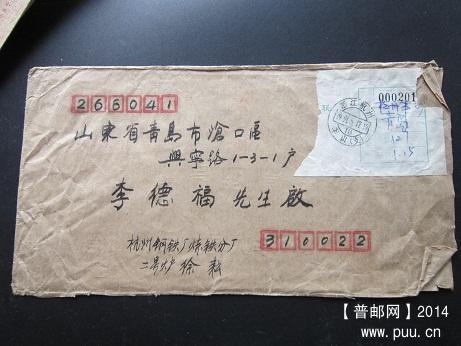 266041
山東省青島市滄口區
興寧路1-3-1户
李德福先生啟
000201
杭州
12
1.15
浙江杭州
310022
杭州钢铁厂炼铁分厂
二号炉徐
【普邮网】2014
www.puu.cn